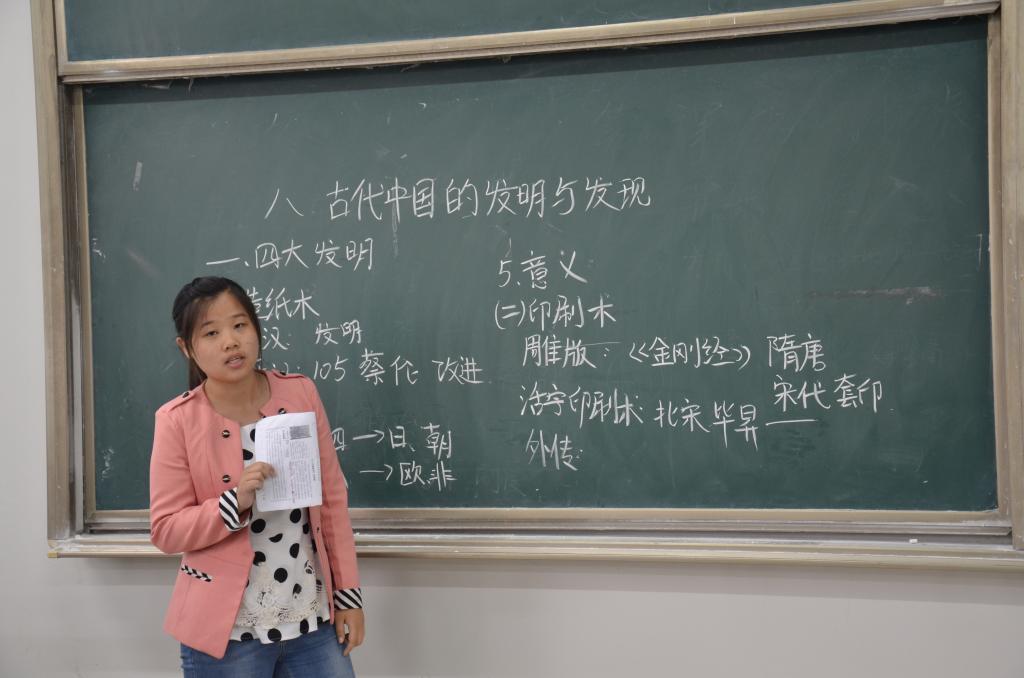 八 古代中国的发明与发现
一、四大发明
造纸术
汉: 发明
: 105 蔡伦 改进
四→日、朝
→欧、非
5.意义
(二)印刷术
雕版: 《金刚经》 隋唐
活字印刷术 北宋 毕昇 —— 宋代 套印
外传: